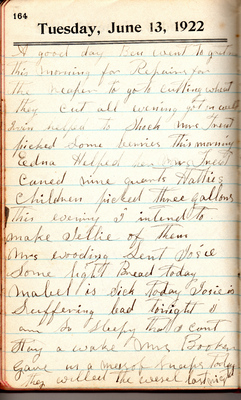 164
Tuesday, June 13, 1922
A good day Ben went to
this morning for Repairs for
the reaper to go to cutting wheat
they cut all evening
Irvin helped to Shock Mrs Trent
picked Some berries this morning
Edna Helped her Mrs Trent
Caned nine quarts Hatties
Children picked three gallons
this evening I intend to
make Jellie of them
Mrs Wooding Sent Josie
Some light Bread today
Mabel is Sick today Josie is
Suffering bad tonight I
am So Sleepy that I cant
Stay a wake Mrs Booker
Gave us a mess of Snaps today
they killed the wesel last night